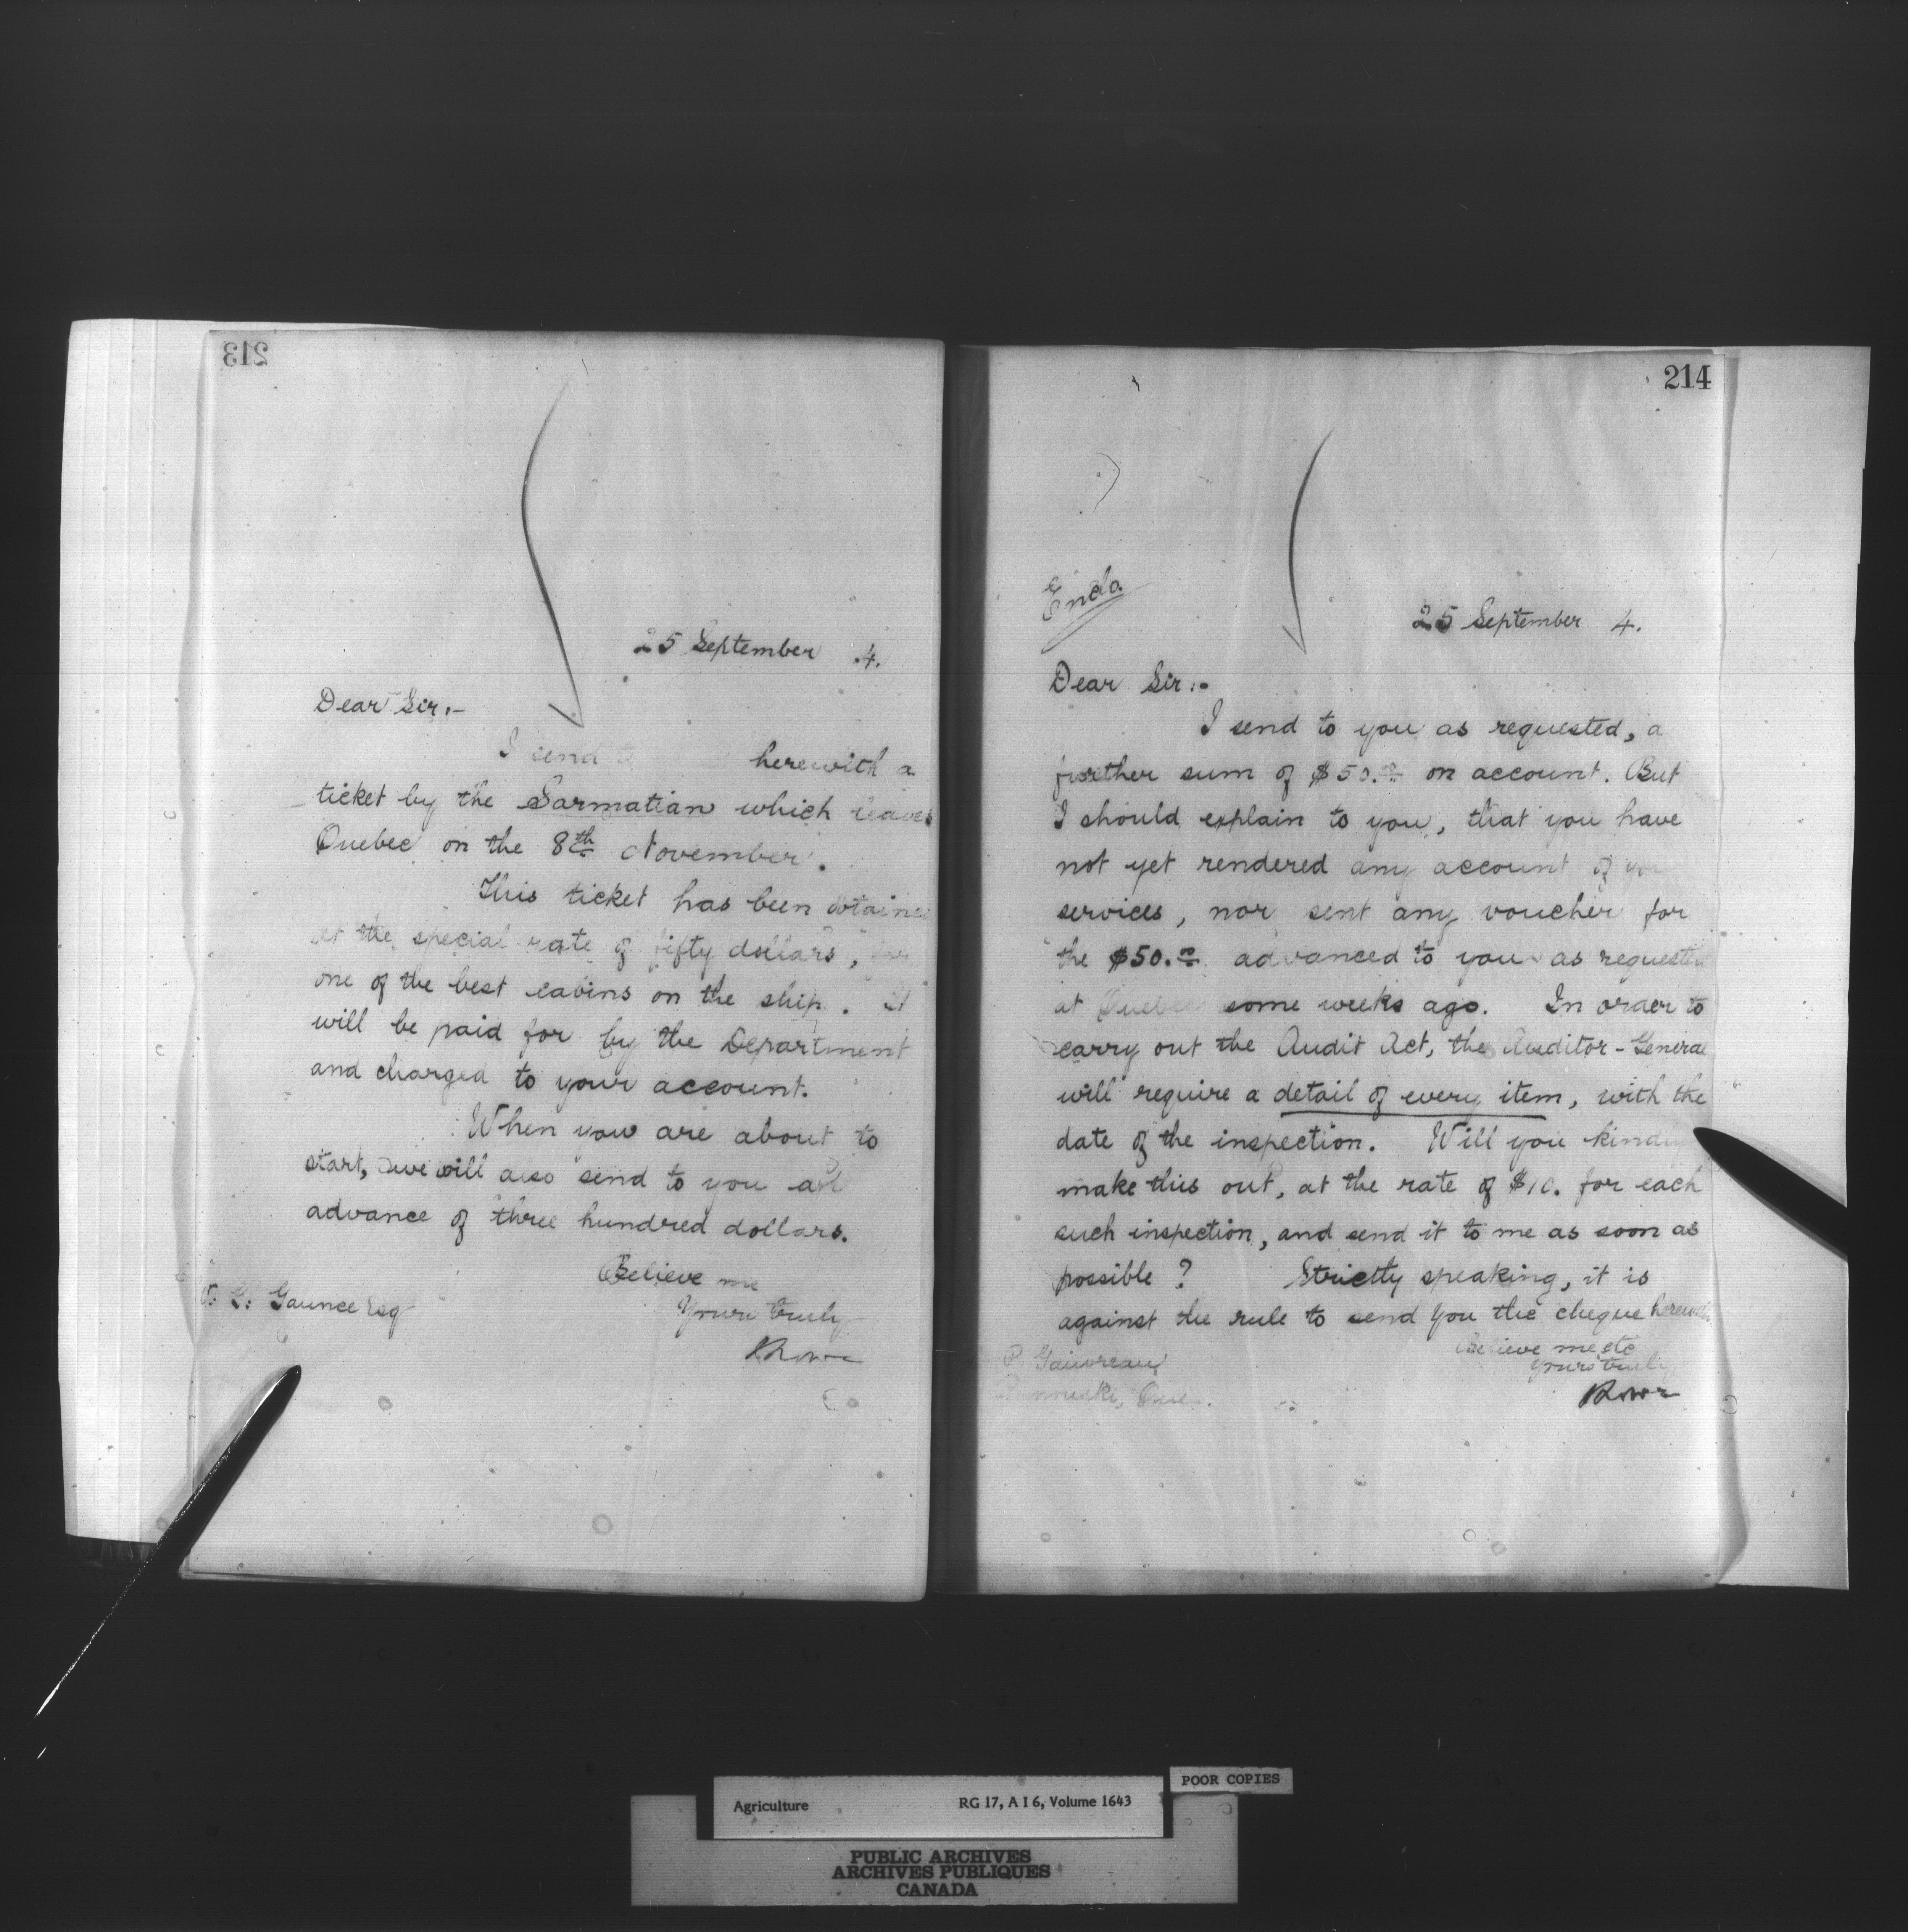 213
25 September 4.
Dear Sir:-
I send herewith a
ticket by the Sarmatian which leaves
Quebec on the 8th November.
This ticket has been obtained
at the special rate of fifty dollars, for
one of the best cabins on the ship. It
will be paid for by the Department
and charged to your account.
When you are about to
start, we will also send to you an
advance of three hundred dollars.
Believe me
Yours truly
G. Gaunce Esq
214
Enclo.
25 September 4.
Dear Sir:-
I send to you as requested, a
further sum of $50.00 on account. But
I should explain to you, that you have
not yet rendered any account of your
services, nor sent any voucher for
the $50.00 advanced to you as requested
at Quebec some weeks ago. In order to
carry out the Audit Act, the Auditor-General
will require a detail of every item, with the
date of the inspection. Will you kindly
make this out, at the rate of $10. for each
such inspection, and send it to me as soon as
possible? Strictly speaking, it is
against the rule to send you the cheque herewith
Believe me etc
Yours truly
P. Gauvreau
Rimouski, Que.
POOR COPIES
Agriculture RG 17, A I 6, Volume 1643
PUBLIC ARCHIVES
ARCHIVES PUBLIQUES
CANADA